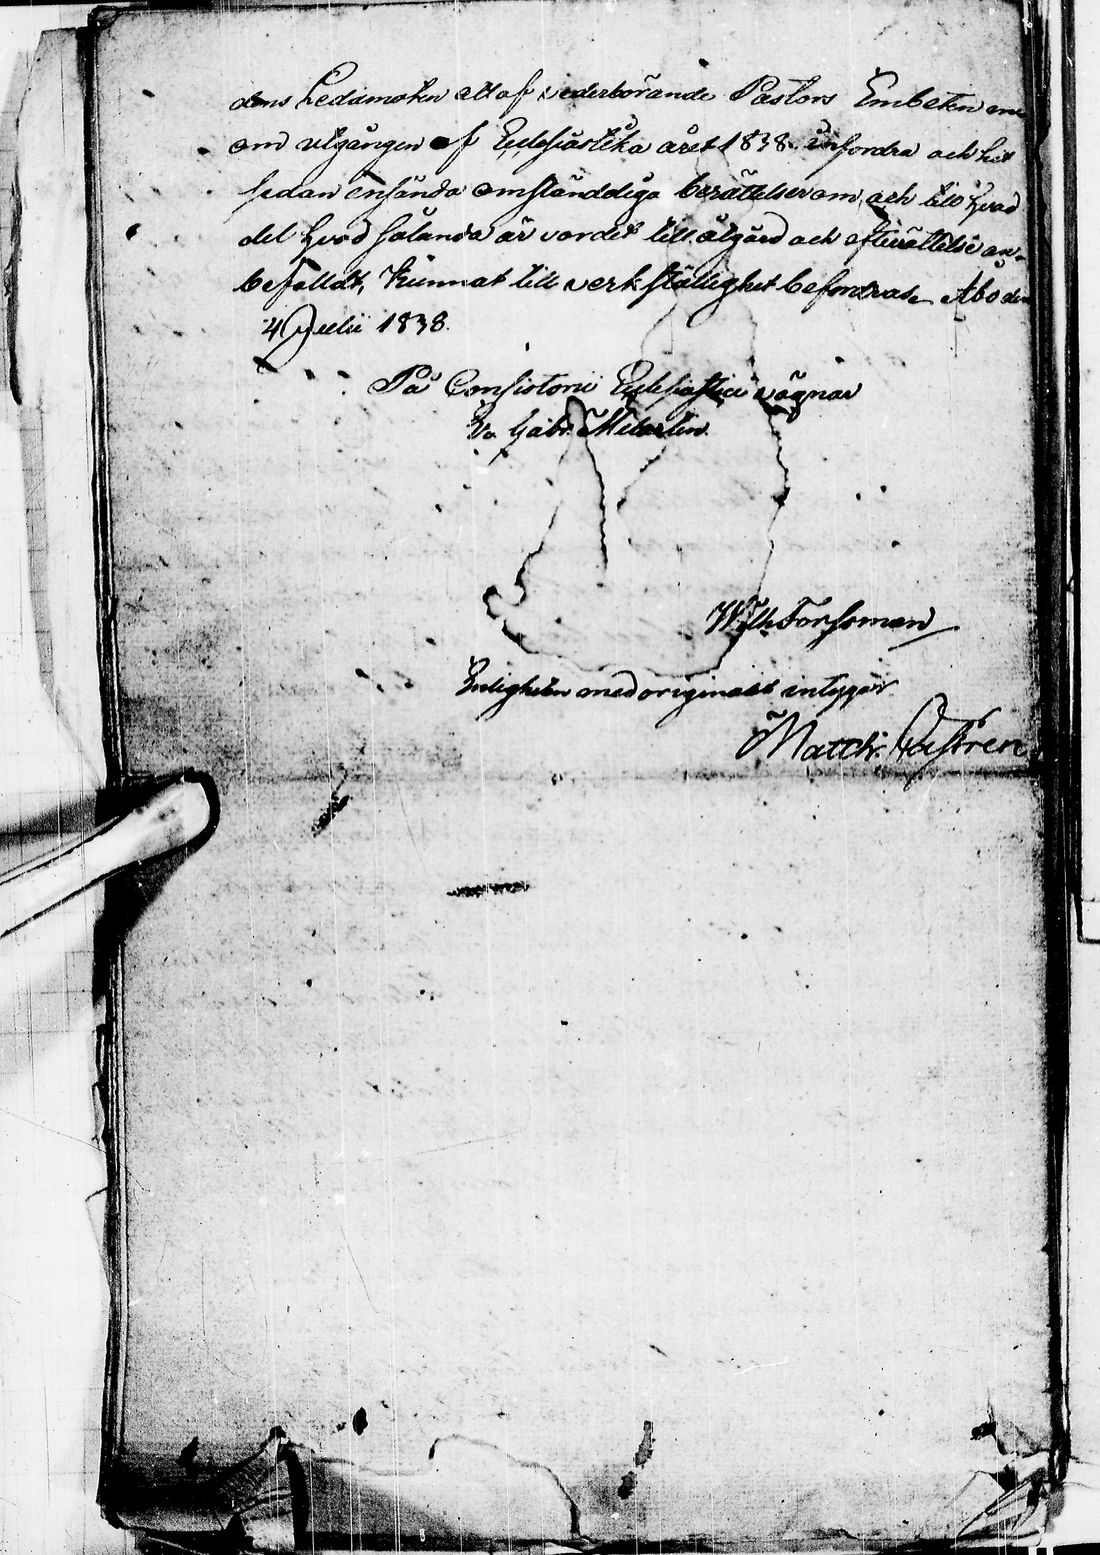 dens Ledamoten att af vederbörande Pastors Embeten
om utgången af Ecclesiastika året 1838 infordra och hit
sedan insända omständeliga berättelser om och till hvad
del hvad sålunda är vordet till åtgärd och efterrättelse an-
befalldt, kunnat till verkställighet befordras. Åbo den
4 Julii 1838.
På Consistorii Ecclesiastici vägnar
Gabr. Melartin.
Wilh Forssman
Enligheten med originalet intygar
Matth. Castren